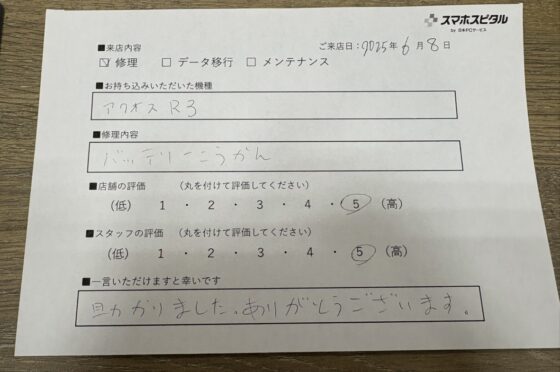 スマホスピタル
by 日本PCサービス
■来店内容
ご来店日：2025年 6月 8日
☑ 修理 □ データ移行 □ メンテナンス
■お持ち込みいただいた機種
アクオス R3
■修理内容
バッテリーこうかん
■店舗の評価 （丸を付けて評価してください）
（低） 1 ・ 2 ・ 3 ・ 4 ・ 5 （高）
■スタッフの評価 （丸を付けて評価してください）
（低） 1 ・ 2 ・ 3 ・ 4 ・ 5 （高）
■一言いただけますと幸いです
助かりました。ありがとうございます。